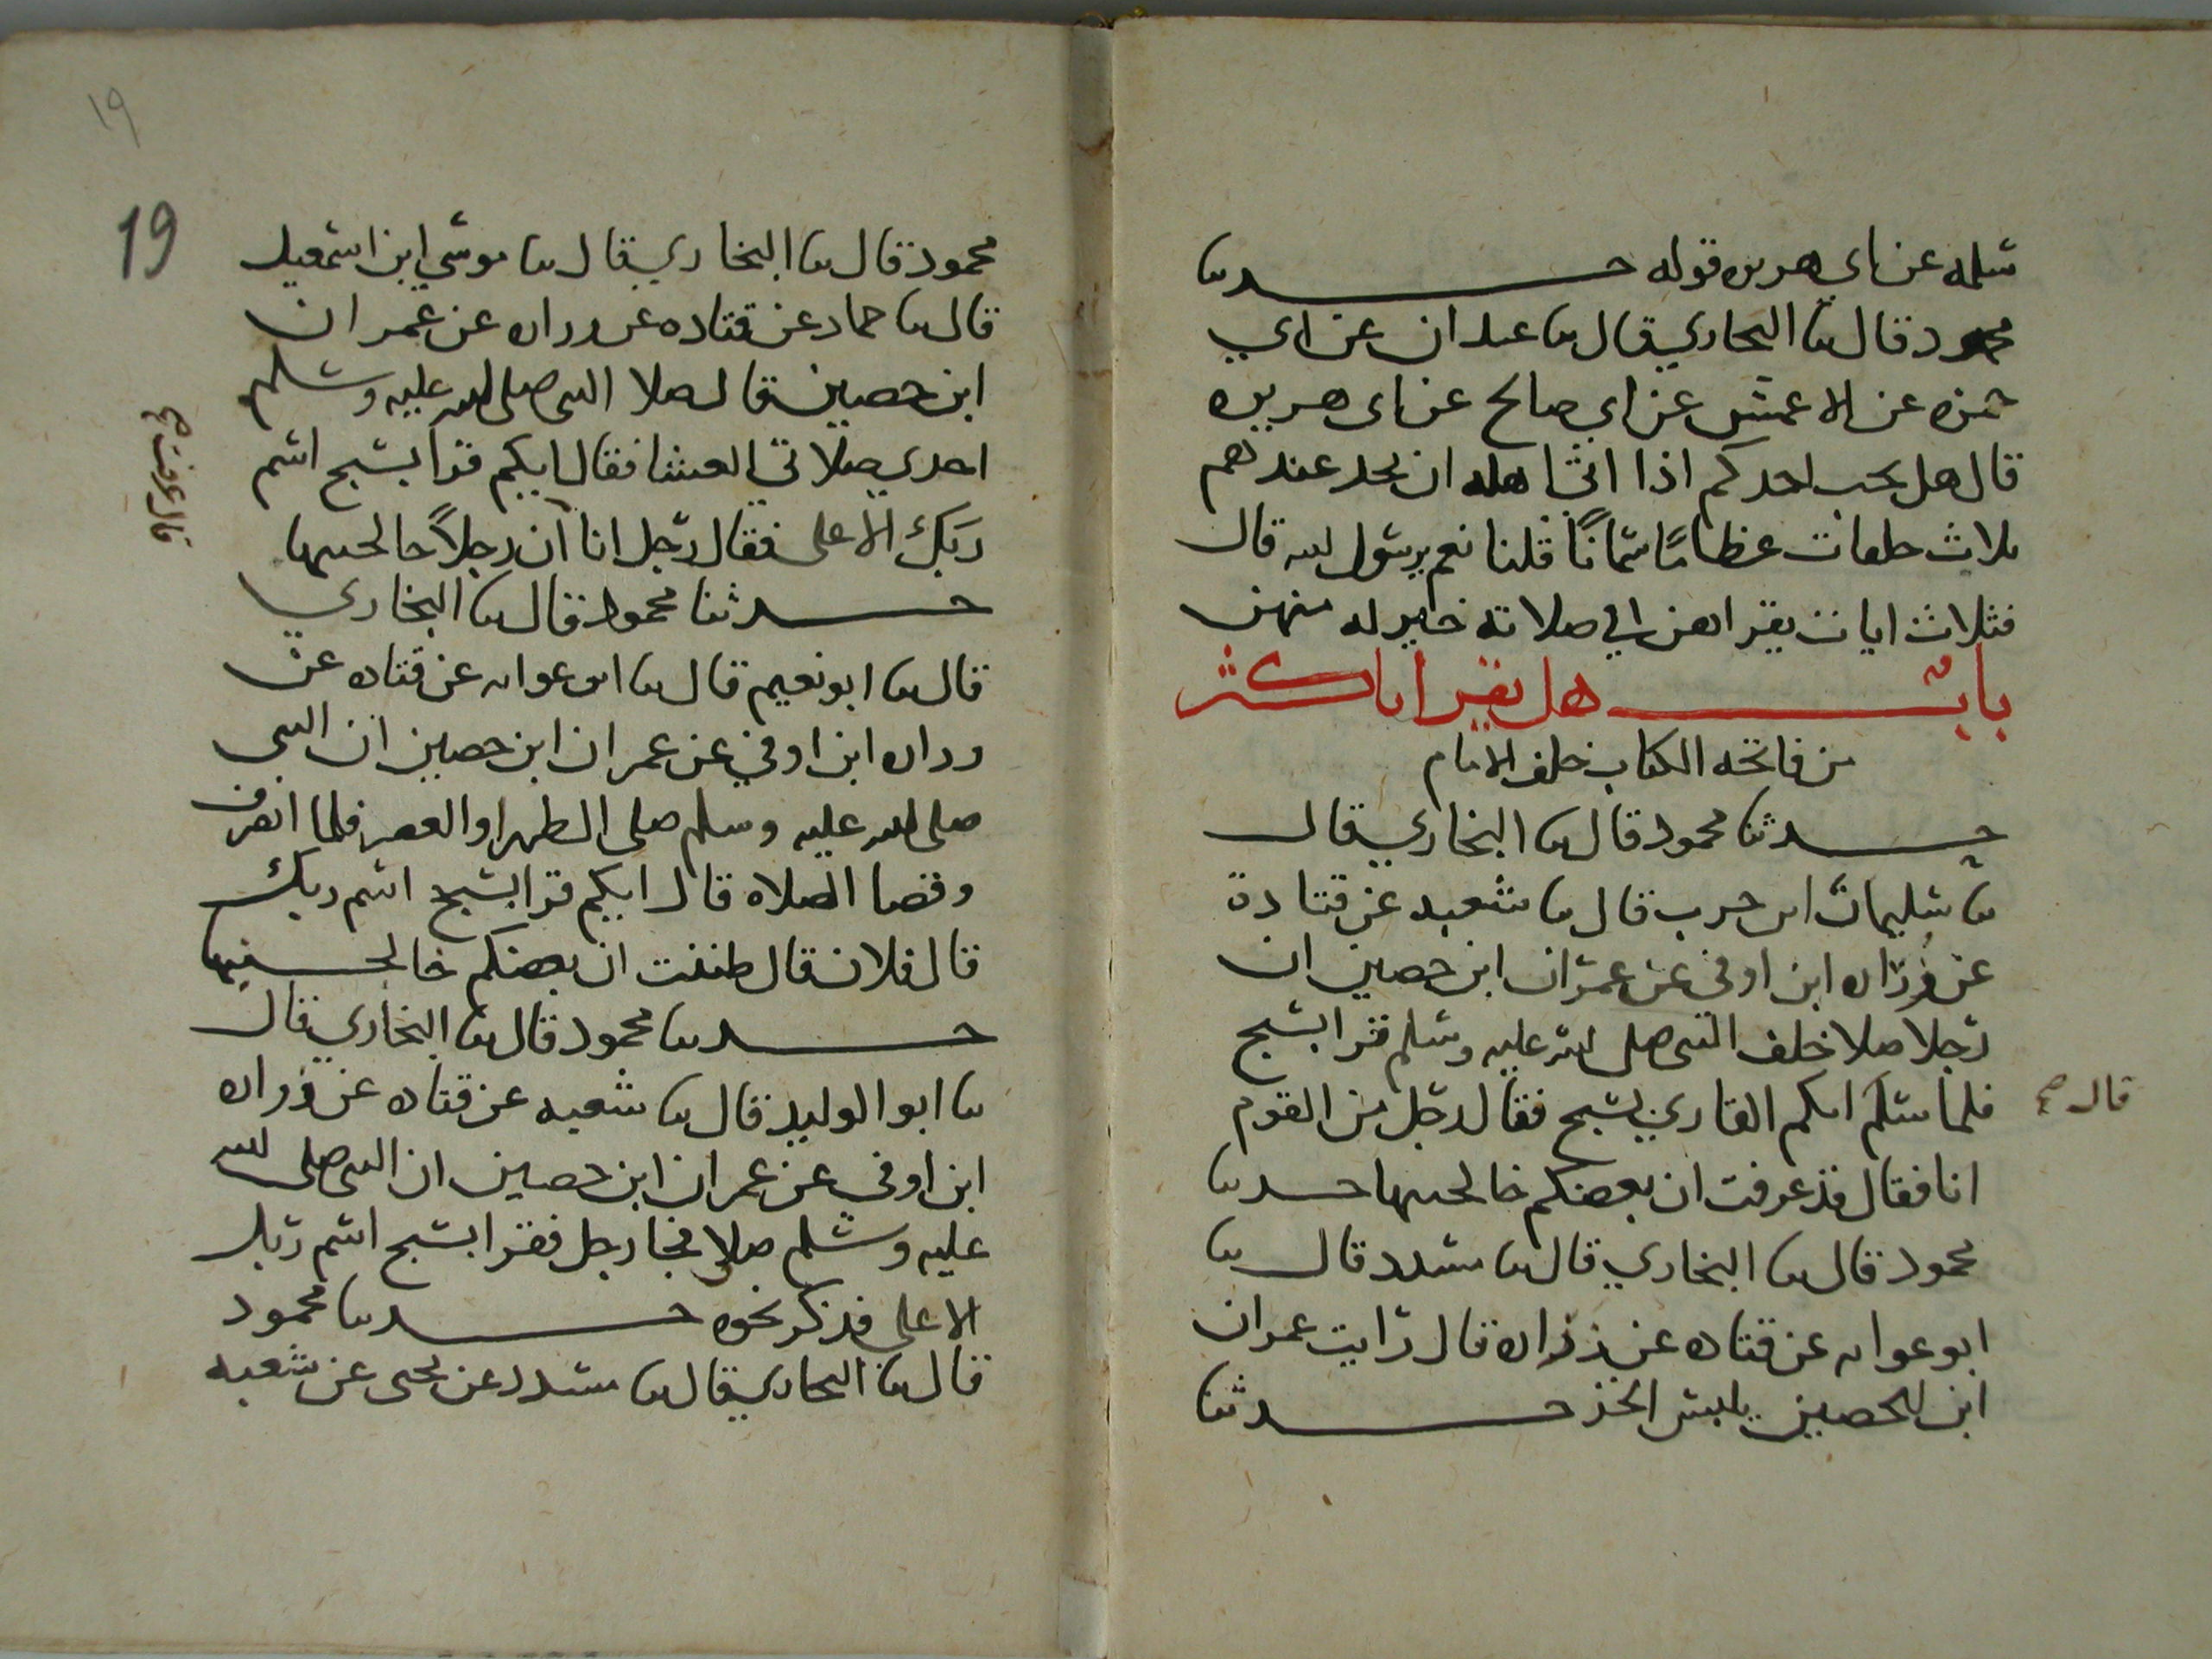 سلمه عن ابي هريره قوله حدثنا
محمود قال ثنا البخاري قال ثنا عبدان عن ابي
حمزه عن الاعمش عن ابي صالح عن ابي هريره
قال هل يحب احدكم اذا اتى اهله ان يجد عندهم
ثلاث خلفات عظامًا سمانًا قلنا نعم يرسول الله قال
فثلاث ايات يقراهن في صلاته خير له منهن
باب هل يقرا باكثر
من فاتحه الكتاب خلف الامام
حدثنا محمود قال ثنا البخاري قال
ثنا سليمان ابن حرب قال ثنا شعبه عن قتادة
عن زراره ابن اوفى عن عمران ابن حصين ان
رجلا صلا خلف النبى صلى الله عليه وسلم فقرا بسبح
فلما سلم ايكم القاري بسبح فقال رجل من القوم
قال صح
انا فقال قد عرفت ان بعضكم خالجنيها حدثنا
محمود قال ثنا البخاري قال ثنا مسدد قال ثنا
ابو عوانه عن قتاده عن زراره قال رايت عمران
ابن الحصين يلبس الخز حدثنا
19
19
محمود قال ثنا البخاري قال ثنا موسي ابن اسمعيل
قال ثنا حماد عن قتاده عن زراره عن عمران
ابن حصين قال صلا النبى صلى الله عليه وسلم
احدي صلاتي العشا فقال ايكم قرا بسبح اسم
ربك الاعلى فقال رجل انا ان رجلاً خالجنيها
قال عرفت صح
حدثنا محمود قال ثنا البخاري
قال ثنا ابو نعيم قال ثنا ابو عوانه عن قتاده عن
زراره ابن اوفي عن عمران ابن حصين ان النبى
صلى الله عليه وسلم صلى الظهر او العصر فلما انصرف
وقضا الصلاه قال ايكم قرا بسبح اسم ربك
قال فلان قال ظننت ان بعضكم خالجنيها
حدثنا محمود قال ثنا البخاري قال
ثنا ابو الوليد قال ثنا شعبه عن قتاده عن زراره
ابن اوفي عن عمران ابن حصين ان النبى صلى الله
عليه وسلم صلا فجا رجل فقرا بسبح اسم ربك
الاعلى فذكر نحوه حدثنا محمود
قال ثنا البخاري قال ثنا مسدد عن يحيى عن شعبه